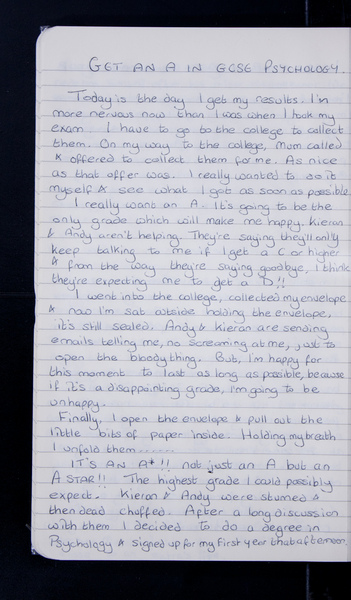 GET AN A IN GCSE PSYCHOLOGY.
Today is the day I get my results. I'm
more nervous now than I was when I took my
exam. I have to go to the college to collect
them. On my way to the college, Mum called
& offered to collect them for me. As nice
as that offer was. I really wanted to do it
myself & see what I got as soon as possible.
I really want an A. It's going to be the
only grade which will make me happy. Kieran
& Andy aren't helping. They're saying they'll only
keep talking to me if I get a C or higher
& from the way they're saying goodbye, I think
they're expecting me to get a D!!
I went into the college, collected my envelope
& now I'm sat outside holding the envelope,
it's still sealed. Andy & Kieran are sending
emails telling me, no screaming at me, just to
open the bloody thing. But, I'm happy for
this moment to last as long as possible, because
if it's a disappointing grade, I'm going to be
unhappy.
Finally, I open the envelope & pull out the
little bits of paper inside. Holding my breath
I unfold them......
IT'S AN A*!! not just an A but an
A STAR!! The highest grade I could possibly
expect. Kieran & Andy were stunned &
then dead chuffed. After a long discussion
with them I decided to do a degree in
Psychology & signed up for my first year that afternoon.